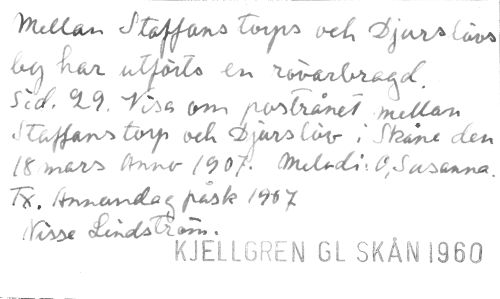 Mellan Staffans torps och Djurslövs
by har utförts en rövarbragd.
Sid. 29. Visa om posträ̊net mellan
Staffans torp och Djurslöv i Skåne den
18 mars Anno 1907. Melodi: O, Susanna.
Tx. Annandag påsk 1907
Nisse Lindström.
KJELLGREN GL SKÅN 1960